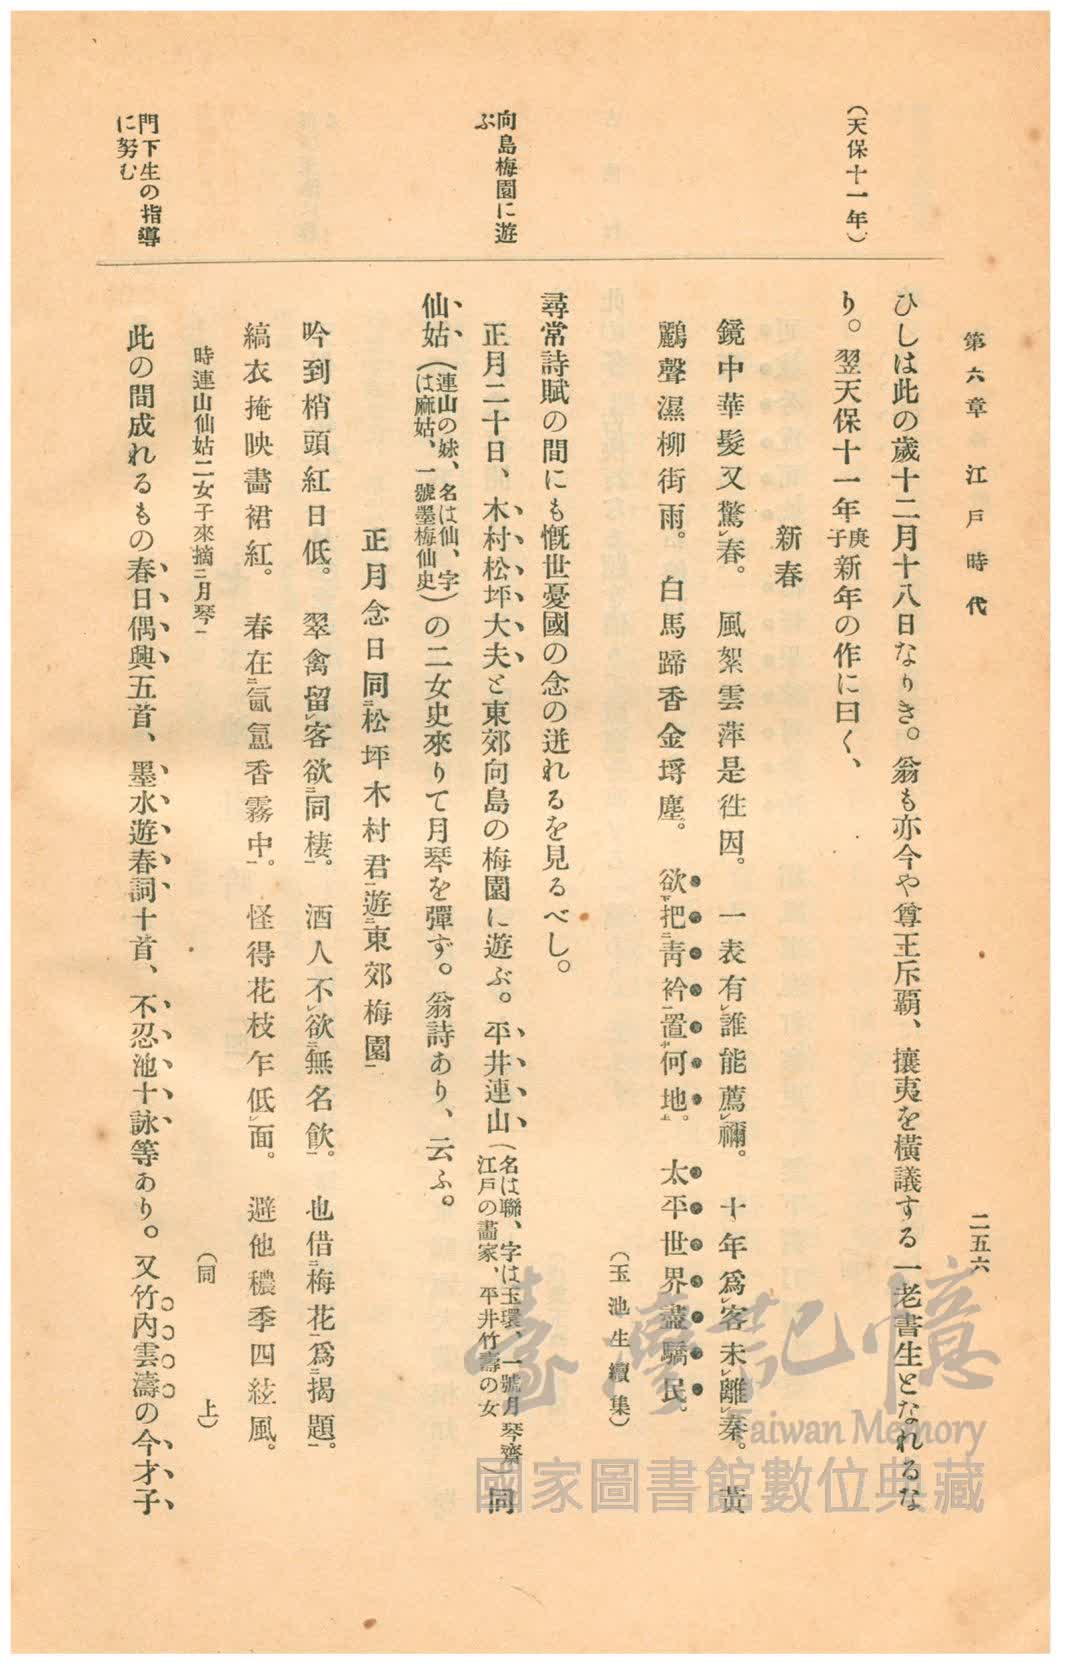 第六章　江戸時代
二五六
（天保十一年）
向島梅園に遊
ぶ
門下生の指導
に努む
ひしは此の歲十二月十八日なりき。翁も亦今や尊王斥覇、攘夷を橫議する一老書生となれるな
り。翌天保十一年庚子新年の作に曰く、
新春
鏡中華髮又驚レ春。　風絮雲萍是徃因。　一表有レ誰能薦レ禰。　十年爲レ客未レ離レ秦。　黃
鸝聲濕柳街雨。　白馬蹄香金埒塵。　欲下把二靑衿一置中何地上。　太平世界盡驕民。
（玉池生續集）
尋常詩賦の間にも慨世憂國の念の迸れるを見るべし。
正月二十日、木村松坪大夫と東郊向島の梅園に遊ぶ。平井連山（名は聯、字は玉環、一號月琴齋、江戸の畵家、平井竹壽の女）同
仙姑（連山の妹、名は仙、字は麻姑、一號墨梅仙史）の二女史來りて月琴を彈ず。翁詩あり、云ふ。
正月念日同二松坪木村君一遊二東郊梅園一
吟到梢頭紅日低。　翠禽留レ客欲二同棲一。　酒人不レ欲二無名飮一。　也借二梅花一爲二揭題一。
縞衣掩映畵裙紅。　春在二氤氳香霧中一。　怪得花枝乍低レ面。　避他穠季四絃風。
時連山仙姑二女子來摘二月琴一
（同　上）
此の間成れるもの春日偶興五首、墨水遊春詞十首、不忍池十詠等あり。又竹內雲濤の今才子
臺灣記憶
Taiwan Memory
國家圖書館數位典藏